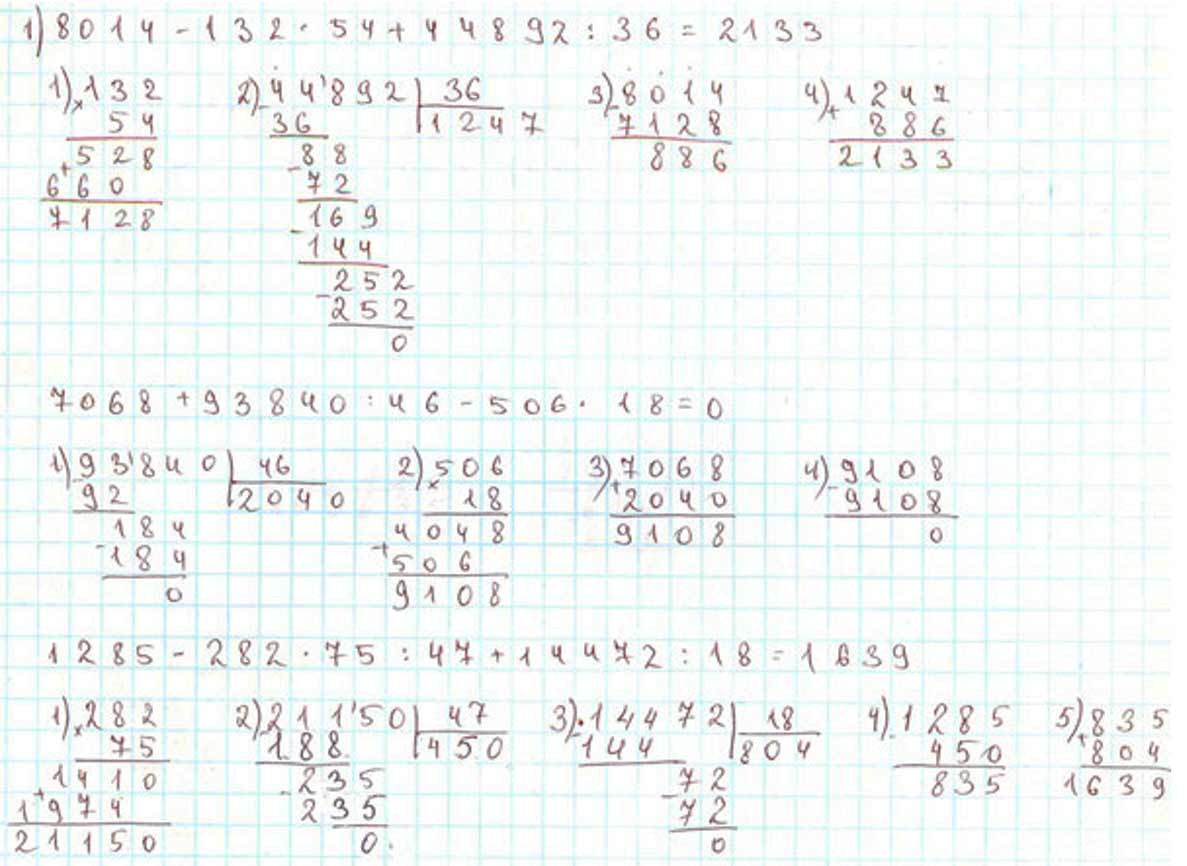 1) 8014 - 132 · 54 + 44892 : 36 = 2133
1) 132 2) 44'892 | 36 3) 8014 4) 1247
× 54 - 36 | 1247 - 7128 + 886
528 88 886 2133
+ 660 - 72
7128 169
- 144
252
- 252
0
7068 + 93840 : 46 - 506 · 18 = 0
1) 93'840 | 46 2) 506 3) 7068 4) 9108
- 92 | 2040 × 18 + 2040 - 9108
184 4048 9108 0
- 184 + 506
0 9108
1285 - 282 · 75 : 47 + 14472 : 18 = 1639
1) 282 2) 211'50 | 47 3) 14472 | 18 4) 1285 5) 835
× 75 - 188 | 450 - 144 | 804 - 450 + 804
1410 235 72 835 1639
+ 1974 - 235 - 72
21150 0. 0